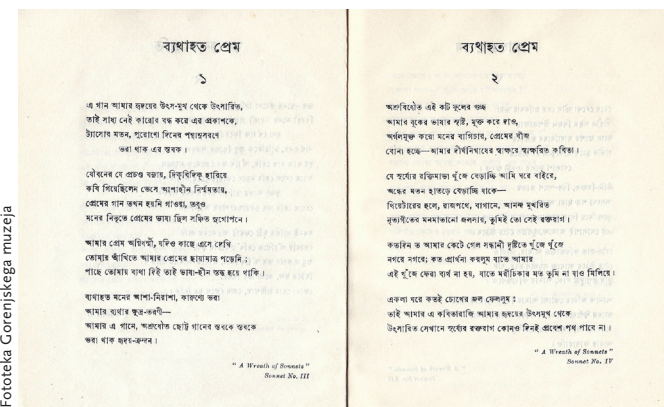 ব্যথাহত প্রেম
১
এ গান আমার হৃদয়ের উৎস-মুখ থেকে উৎসারিত,
তাই সাধ্য নেই কারোর বন্ধ করে এর প্রকাশকে,
ট্যাসোর মতন, পুরোণো দিনের পন্থানুসরণে
ভরা থাক এর স্তবক।
যৌবনের যে প্রচণ্ড বন্যায়, দিক্‌বিদিক্ হারিয়ে
কবি গিয়েছিলেন ভেসে আশাহীন নির্ম্মমতায়,
প্রেমের গান তখন হয়নি গাওয়া, তবুও
মনের নিভৃতে প্রেমের ভাষা ছিল সঞ্চিত সুগোপনে।
আমার প্রেম অগ্নিবর্ষী, যদিও কাছে এসে দেখি
তোমার আঁখিতে আমার প্রেমের ছায়ামাত্র পড়েনি;
পাছে তোমায় ব্যথা দিই তাই ভাষা-হীন স্তব্ধ হয়ে থাকি।
ব্যথাহত মনের আশা-নিরাশা, কারুণ্যে ভরা
আমার ব্যথার ক্ষুদ্র-তরণী—
আমার এ গানে, অশ্রুধৌত ছোট্ট গানের স্তবকে স্তবকে
ভরা থাক হৃদয়-ক্রন্দন।
" A Wreath of Sonnets "
Sonnet No. III
ব্যথাহত প্রেম
২
অশ্রুবিধৌত এই কটি ফুলের গুচ্ছ
আমার বুকের ভাষার সৃষ্টি, মুক্ত করে দাও,
অর্গলমুক্ত করো মনের বাগিচার, প্রেমের বীজ
বোনা হচ্ছে—আমার দীর্ঘনিশ্বাসের স্বাক্ষরে স্বাক্ষরিত কবিতা।
যে সূর্য্যের রক্তিমাভা খুঁজে বেড়াচ্ছি আমি ঘরে বাইরে,
অন্ধের মতন হাতড়ে বেড়াচ্ছি যাকে—
থিয়েটারের হলে, রাজপথে, বাগানে, আনন্দ মুখরিত
নৃত্যগীতের মনমাতানো জলসায়, তুমিই তো সেই রক্তরাগ।
কতদিন ত আমার কেটে গেল সন্ধানী দৃষ্টিতে খুঁজে খুঁজে
নগরে নগরে; কত প্রার্থনা করলুম যাতে আমার
এই খুঁজে ফেরা ব্যর্থ না হয়, যাতে মরীচিকার মত তুমি না যাও মিলিয়ে।
একলা ঘরে কতই চোখের জল ফেললুম;
তাই আমার এ কবিতারাজি আমার হৃদয়ের উৎসমুখ থেকে
উৎসারিত সেখানে সূর্য্যের রক্তরাগ কোনও দিনই প্রবেশ পথ পাবে না।
" A Wreath of Sonnets "
Sonnet No. IV
Fototeka Gorenjskega muzeja